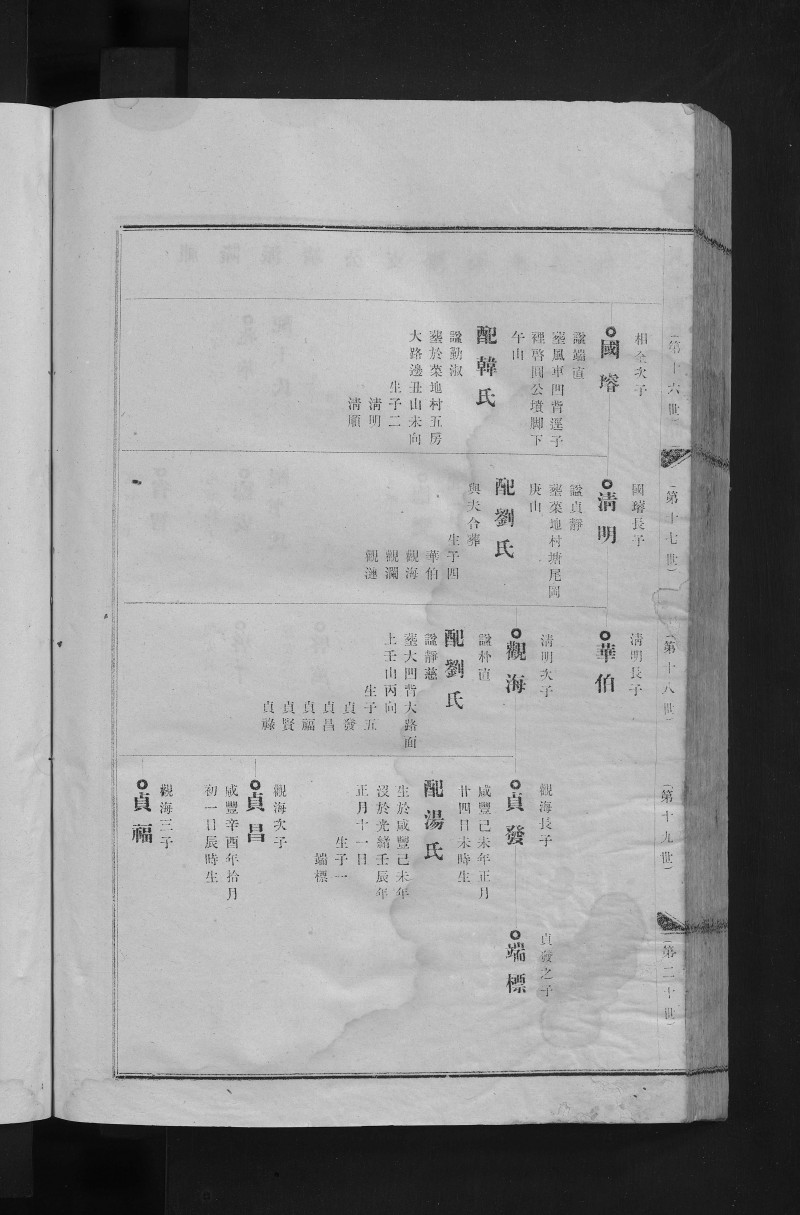 （第十六世）
相全次子
國璿
諡端直
墓風車凹背逕子
裡啓圓公墳脚下
午山
配韓氏
諡勤淑
墓於菜地村五房
大路邊丑山未向
生子二
淸明
淸順
（第十七世）
國璿長子
淸明
諡貞靜
墓菜地村塘尾岡
庚山
配劉氏
與夫合葬
生子四
華伯
觀海
觀瀾
觀漣
（第十八世）
淸明長子
華伯
淸明次子
觀海
諡朴直
配劉氏
諡靜慈
墓大凹背大路面
上壬山丙向
生子五
貞發
貞昌
貞福
貞賢
貞祿
（第十九世）
觀海長子
貞發
咸豐己未年正月
廿四日未時生
配湯氏
生於咸豐己未年
沒於光緒壬辰年
正月十一日
生子一
端標
觀海次子
貞昌
咸豐辛酉年拾月
初一日辰時生
觀海三子
貞福
（第二十世）
貞發之子
端標